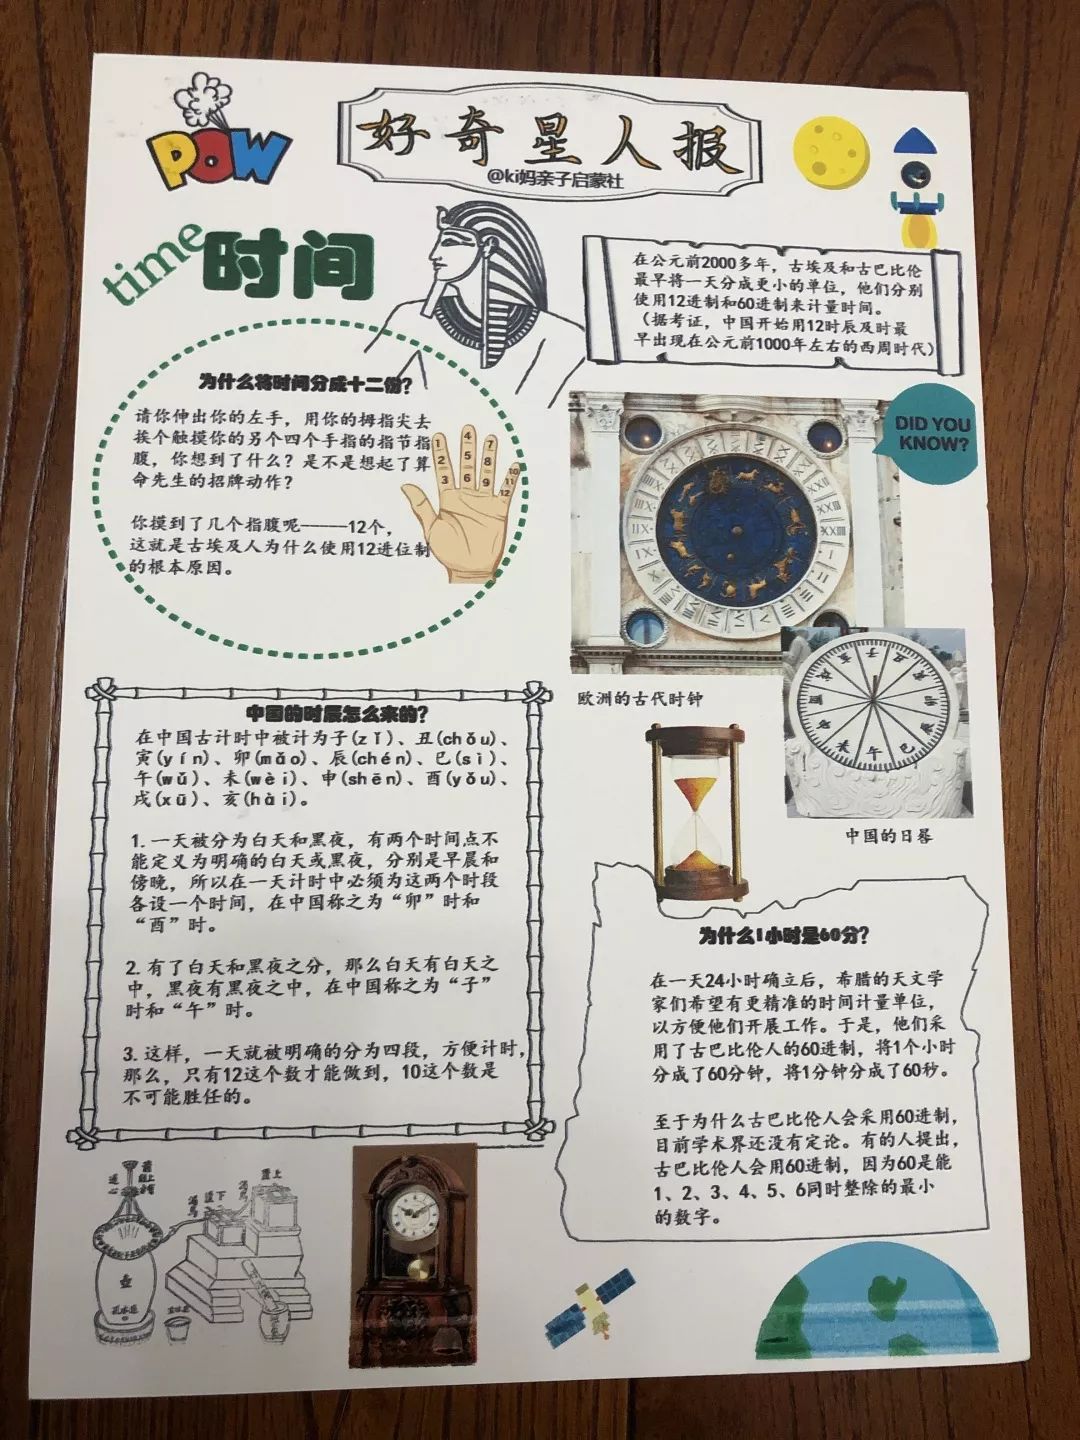 POW
好奇星人报
@ki妈亲子启蒙社
time
时间
在公元前2000多年，古埃及和古巴比伦
最早将一天分成更小的单位，他们分别
使用12进制和60进制来计量时间。
（据考证，中国开始用12时辰及时最
早出现在公元前1000年左右的西周时代）
为什么将时间分成十二份？
请你伸出你的左手，用你的拇指尖去
挨个触摸你的另个四个手指的指节指
腹，你想到了什么？是不是想起了算
命先生的招牌动作？
你摸到了几个指腹呢———12个，
这就是古埃及人为什么使用12进位制
的根本原因。
1 4 7 10
2 5 8 11
3 6 9 12
DID YOU
KNOW?
欧洲的古代时钟
子 丑 卯 巳 午 未 酉 亥
中国的日晷
中国的时辰怎么来的？
在中国古计时中被计为子(zǐ)、丑(chǒu)、
寅(yín)、卯(mǎo)、辰(chén)、巳(sì)、
午(wǔ)、未(wèi)、申(shēn)、酉(yǒu)、
戌(xū)、亥(hài)。
1. 一天被分为白天和黑夜，有两个时间点不
能定义为明确的白天或黑夜，分别是早晨和
傍晚，所以在一天计时中必须为这两个时段
各设一个时间，在中国称之为“卯”时和
“酉”时。
2. 有了白天和黑夜之分，那么白天有白天之
中，黑夜有黑夜之中，在中国称之为“子”
时和“午”时。
3. 这样，一天就被明确的分为四段，方便计时，
那么，只有12这个数才能做到，10这个数是
不可能胜任的。
为什么1小时是60分？
在一天24小时确立后，希腊的天文学
家们希望有更精准的时间计量单位，
以方便他们开展工作。于是，他们采
用了古巴比伦人的60进制，将1个小时
分成了60分钟，将1分钟分成了60秒。
至于为什么古巴比伦人会采用60进制，
目前学术界还没有定论。有的人提出，
古巴比伦人会用60进制，因为60是能
1、2、3、4、5、6同时整除的最小
的数字。
壶